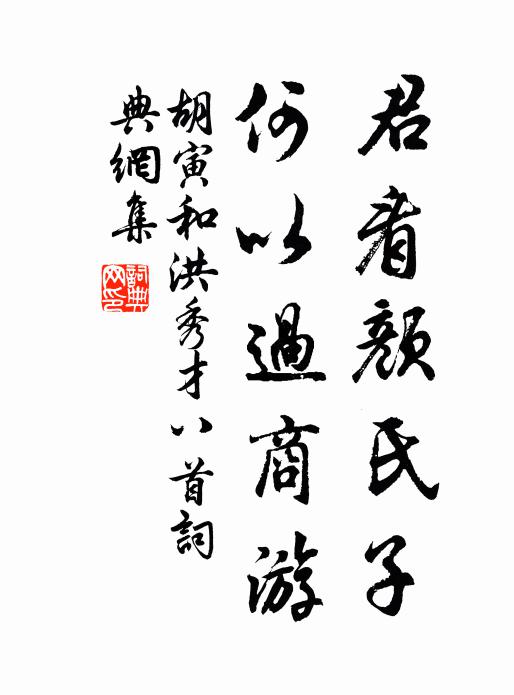 君看顏氏子
何以過商游
胡寅和洪秀才八首詞
典網集
詞典網印